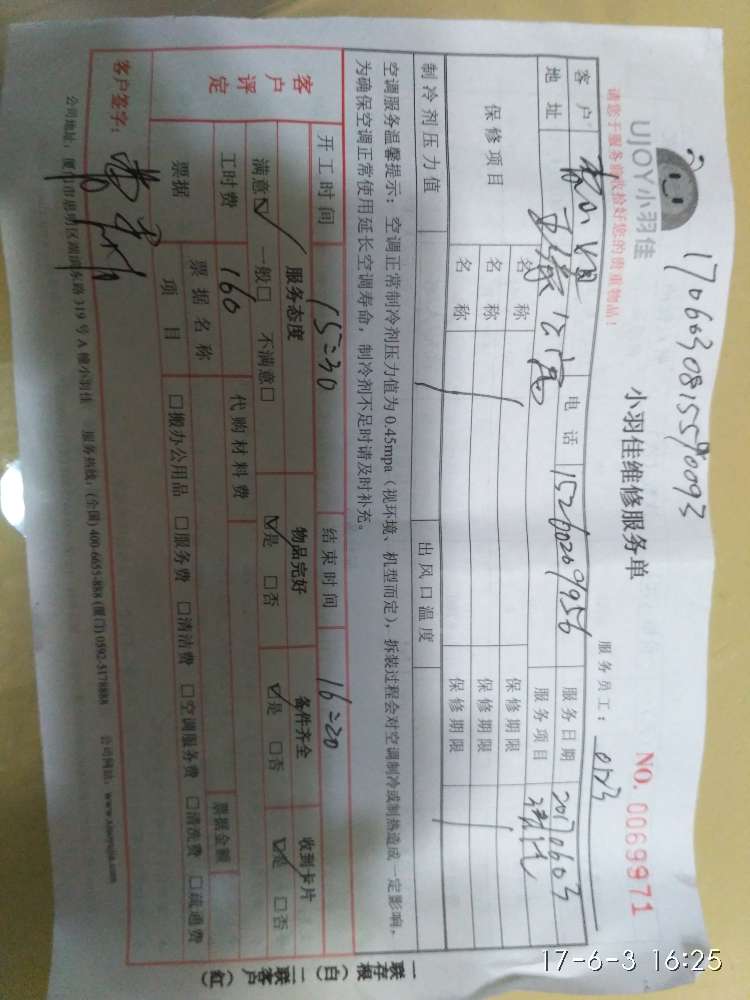 1706030815590093
UJOY小羽佳
小羽佳维修服务单
NO. 0069971
请您于服务前收检好您的贵重物品!
服务员工: 0173
客户 电话 15260209956 服务日期 20170603
地址 公寓 服务项目 清洗
保修项目 名称 保修期限
名称 保修期限
名称 保修期限
制冷剂压力值 出风口温度
空调服务温馨提示: 空调正常制冷剂压力值为 0.45mpa (视环境、机型而定), 拆装过程会对空调制冷或制热造成一定影响,
为确保空调正常使用延长空调寿命, 制冷剂不足时请及时补充。
开工时间 15:30 结束时间 16:20
客户评定 服务态度 物品完好 备件齐全 收到卡片
满意☑ 一般□ 不满意□ ☑是 □否 ☑是 □否 ☑是 □否
工时费 160 代购材料费
票据 票据名称 票据金额
项目 □搬办公用品 □服务费 □清洁费 □空调服务费 □清洗费 □疏通费
客户签字:
公司地址: 厦门市思明区湖滨东路 319 号 A 幢小羽佳 服务热线: (全国) 400-6655-888 (厦门) 0592-5178888 公司网站: www.xiaoyujia.com
一联存根(白) 二联客户(红)
17-6-3 16:25